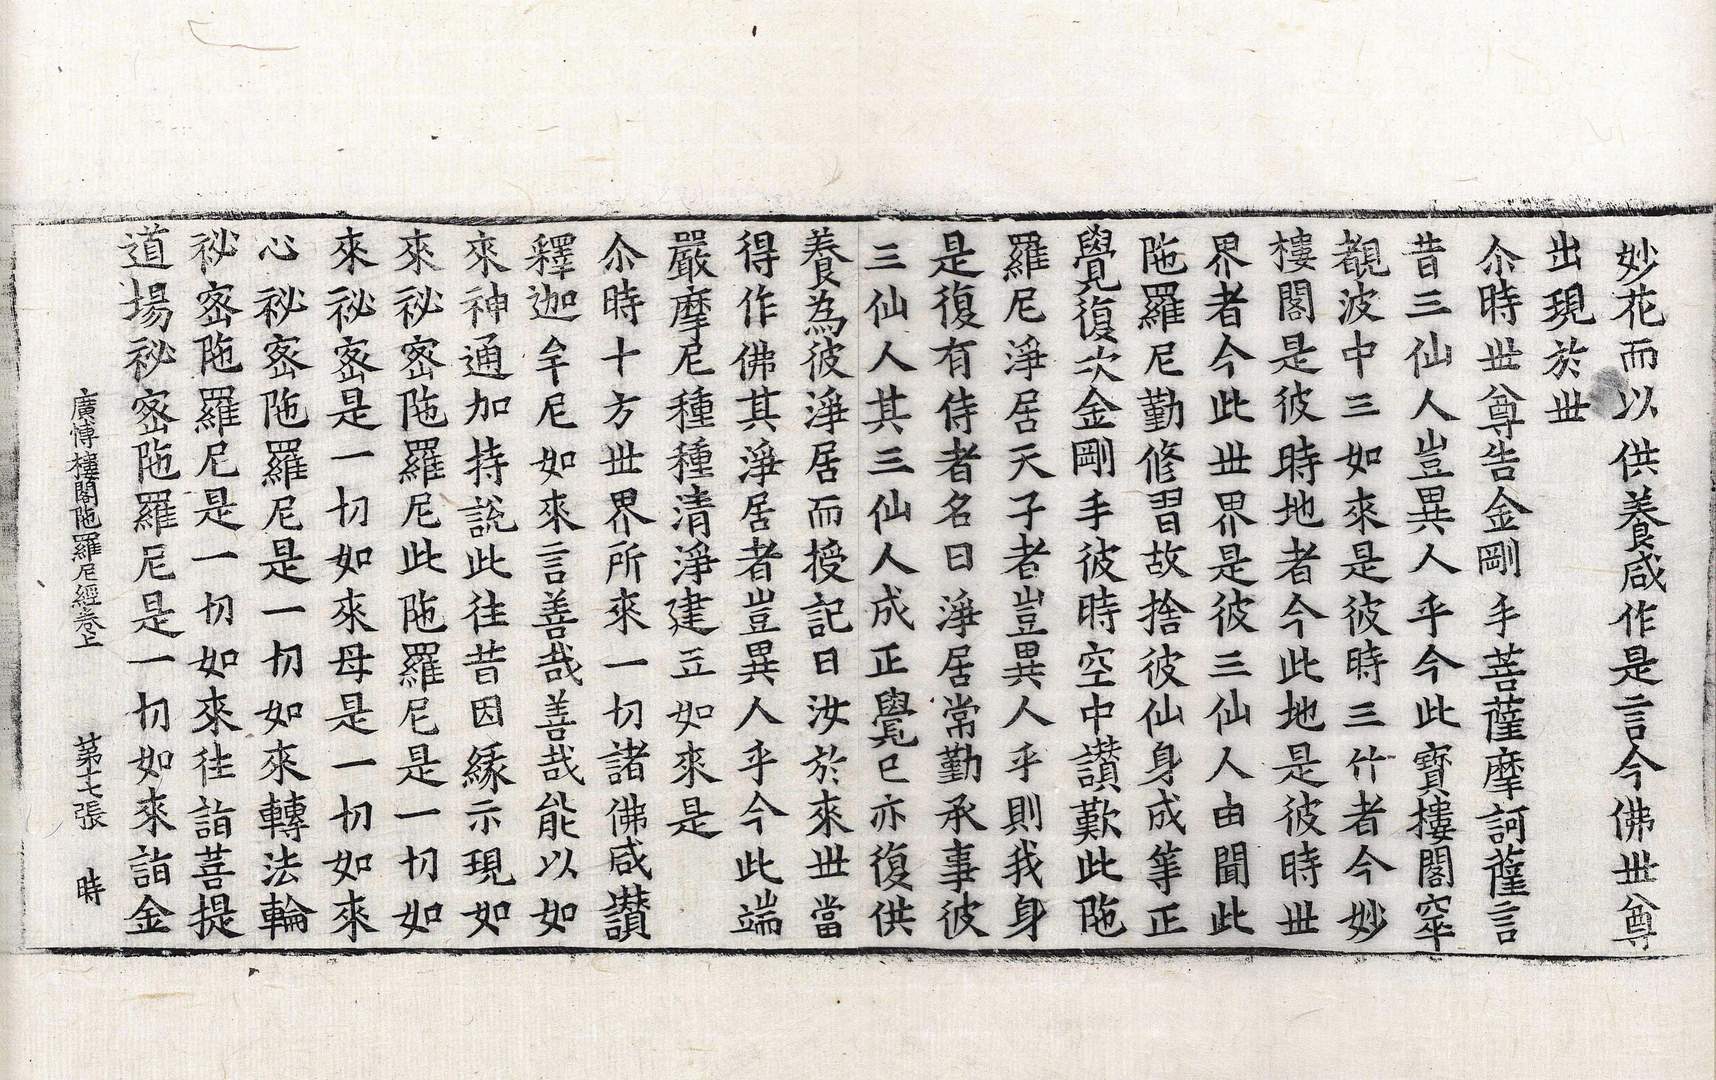 妙花而以供養咸作是言今佛世尊
出現於世
尒時世尊告金剛手菩薩摩訶薩言
昔三仙人豈異人乎今此寶樓閣窣
覩波中三如來是彼時三竹者今妙
樓閣是彼時地者今此地是彼時世
界者今此世界是彼三仙人由聞此
陁羅尼勤修習故捨彼仙身成等正
覺復次金剛手彼時空中讃歎此陁
羅尼淨居天子者豈異人乎則我身
是復有侍者名曰淨居常勤承事彼
三仙人其三仙人成正覺已亦復供
養為彼淨居而授記曰汝於來世當
得作佛其淨居者豈異人乎今此端
嚴摩尼種種清淨建立如來是
尒時十方世界所來一切諸佛咸讃
釋迦牟尼如來言善哉善哉能以如
來神通加持說此往昔因緣示現如
來祕密陁羅尼此陁羅尼是一切如
來祕密是一切如來母是一切如來
心祕密陁羅尼是一切如來轉法輪
祕密陁羅尼是一切如來往詣菩提
道場祕密陁羅尼是一切如來詣金
廣博樓閣陁羅尼經卷上 第七張 時